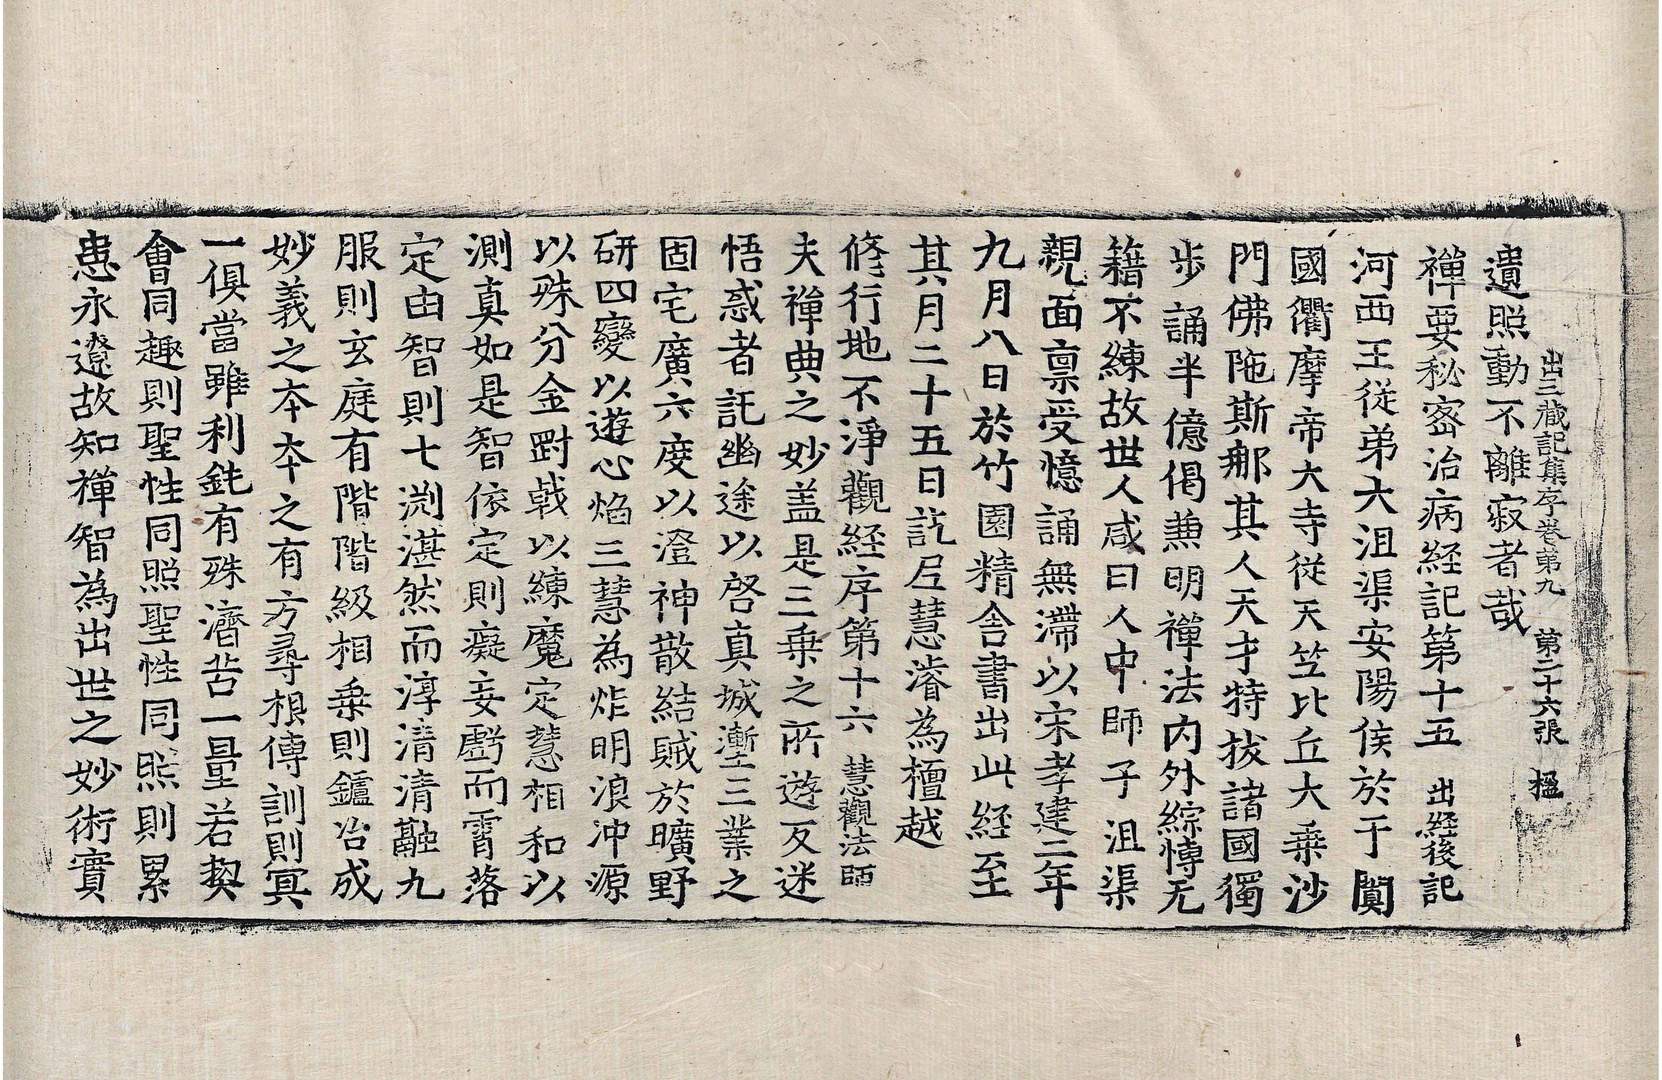 出三藏記集序卷苐九　苐二十六張　楹
遺照動不離寂者哉
禪要秘宻治病經記第十五　出經後記
河西王従弟大沮渠安陽侯於于闐
國衢摩帝大寺従天竺比丘大乗沙
門佛陁斯那其人天才特拔諸國獨
步誦半億偈兼明禪法內外綜愽无
籍不練故世人咸曰人中師子沮渠
親面禀受憶誦無滯以宋孝建二年
九月八日於竹園精舍書出此經至
其月二十五日訖𡰱慧濬為檀越
修行地不淨觀經序第十六　慧觀法師
夫禪典之妙盖是三乗之所遊反迷
悟惑者託幽途以啓真城壍三業之
固宅廣六度以澄神散結賊於曠野
研四變以遊心焰三慧為炸明浪沖源
以殊分金剛戟以練魔定慧相和以
測真如是智依定則癡妄虧而霄落
定由智則七渕湛然而淳清清融九
服則玄庭有階階級相乗則鑪冶成
妙義之夲夲之有方尋根傳訓則冥
一俱當雖利鈍有殊濟苦一量若契
會同趣則聖性同照聖性同照則累
患永遼故知禪智為出世之妙術實